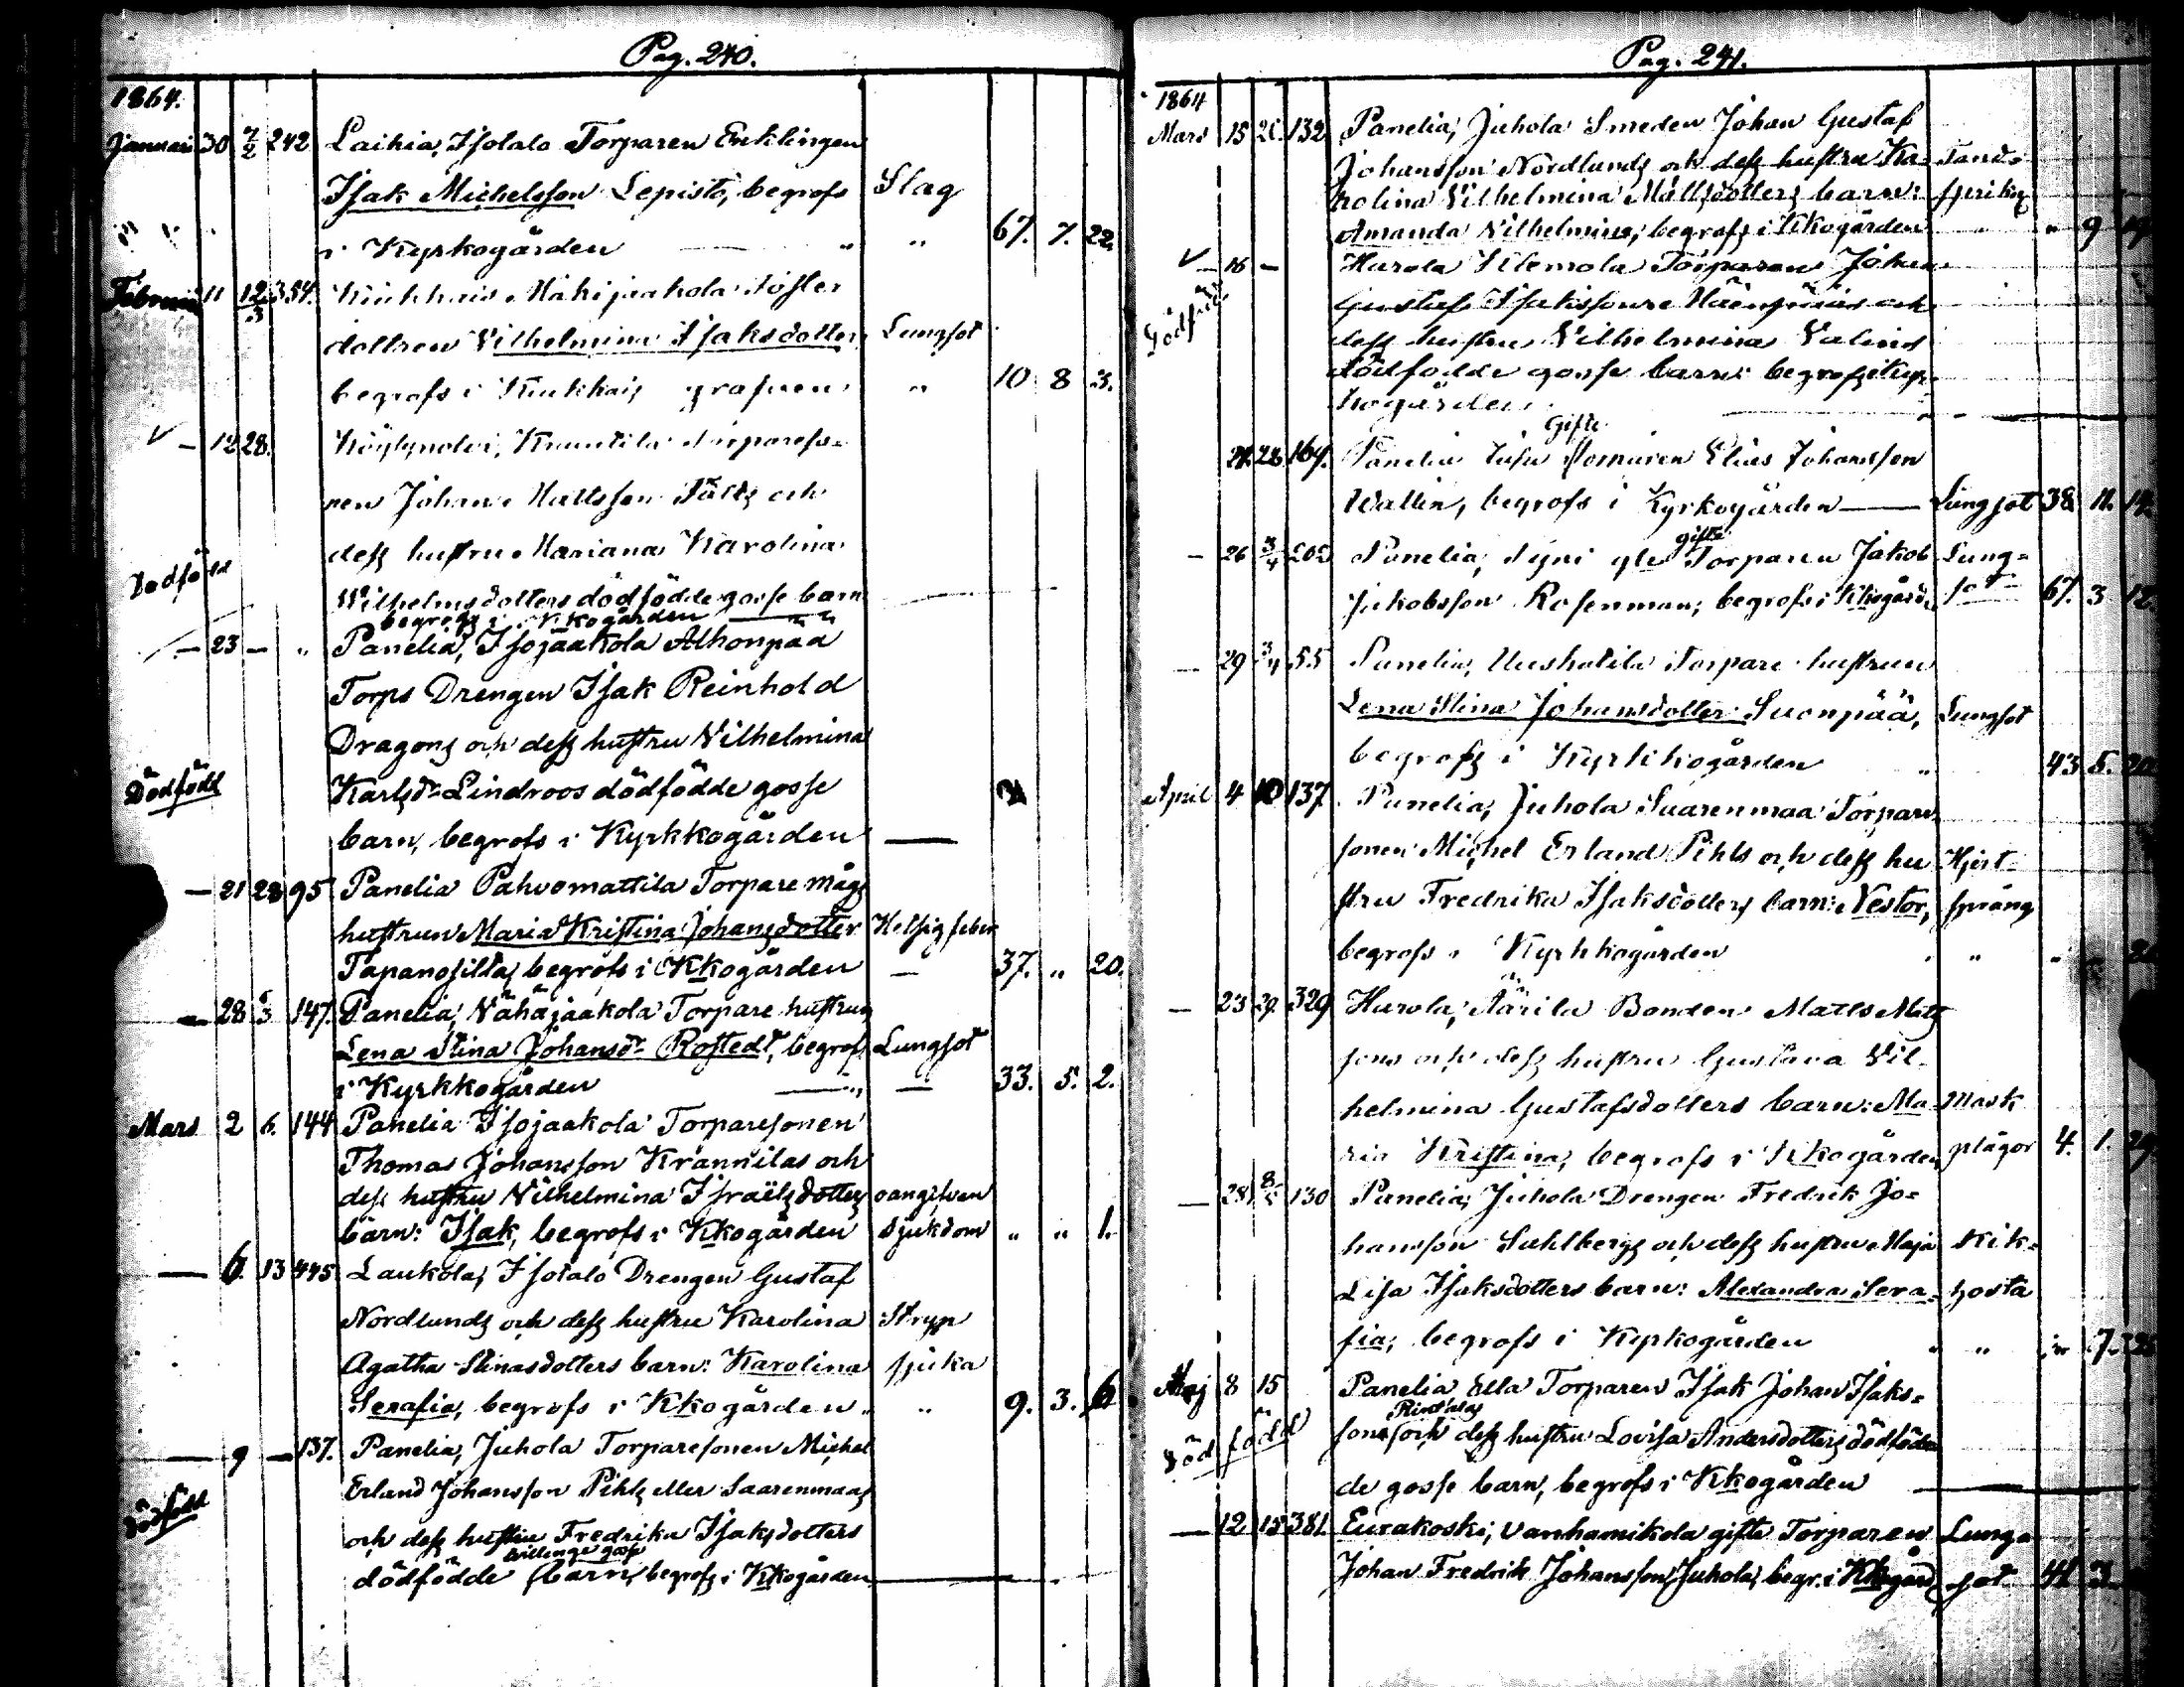 Pag. 240.
1864.
Januari 30 7/2 242 Laihia, Isotalo Torparen Enklingen
Isak Michelsson Lepistö, begrofs Slag
i Kyrkogården — " " 67. 7. 22.
Februari 11 12/3 354. Kiukhais Mähijaakola
dottren Vilhelmina Isaksdotter Lungsot
begrofs i Kiukhais grafven " 10 8 3.
— 12 28. Köylypolvi, Knuutila
nen Johan Mattsson Fälts och
dess hustru Mariana Karolina
Dödfödd
Wilhelmsdotters dödfödde gosse barn
begrofs i Kkogården —
— 23 — " Panelia, Isojaakola Alhonpää
Torps Drengen Isak Reinhold
Dragons och dess hustru Vilhelmina
Dödfödd Karlsdr Lindroos dödfödde gosse
barn, begrofs i Kyrkkogården —
— 21 28 95 Panelia Pahvomattila Torpare mågs
hustrun Maria Kristina Johansdotter Helsig feber
Tapanosilta, begrofs i Kkogården — 37. " 20.
— 28 6/3 147. Panelia, Vähäjaakola Torpare hustrun
Lena Stina Johansdr Rostedt, begrofs Lungsot
i Kyrkkogården — " — 33. 5. 2.
Mars 2 6. 144 Panelia Isojaakola Torparesonen
Thomas Johansson Krannilas och
dess hustru Vilhelmina Israelsdotters oangifven
barn: Isak, begrofs i Kkogården Sjukdom " " 1.
— 6. 13 445 Laukola, Isotalo Drengen Gustaf
Nordlunds och dess hustru Karolina Stryp
Agatha Stinasdotters barn: Karolina sjuka
Serafia, begrofs i Kkogården " " 9. 3. 6
— 9 — 137. Panelia, Juhola Torparesonen Michel
Erland Johansson Pihls eller Saarenmaas
Dödfödd
och dess hustru Fredrika Isaksdotters
tvillinge gosse
dödfödde barn, begrofs i Kkogården —
Pag. 241.
1864
Mars 15 20. 132 Panelia, Juhola Smeden Johan Gustaf
Johansson Nordlunds och dess hustru Ka- Tand-
rolina Vilhelmina Mattsdotters barn: sprikng
Amanda Vilhelmina, begrofs i Kkogården " " 9 19
— 16 — Harola Torparen Johan
Dödfödd
Gustaf Isakssons och
dess hustru Vilhelmina Valins
dödfödde gosse barn: begrofs i Kyr-
kogården. —
Gifte
21. 28 164. Panelia Elias Johansson
Wallin, begrofs i Kyrkogården — Lungsot 38 11. 14.
gifte
— 26 3/4 202 Panelia, Torparen Jakob Lung-
Jakobsson Rosenman, begrofs i Kkogård. sot — 67. 3 12
— 29 3/4 55 Panelia, Uushatila Torpare hustrun
Lena Stina Johansdotter Suonpää, Lungsot
begrofs i Kyrkkogården " 43 5. 20
April 4 10 137 Panelia, Juhola Saarenmaa Torpare
sonen Michel Erland Pihls och dess hu Hjert-
stru Fredrika Isaksdotters barn: Nestor, språng
begrofs i Kyrkkogården " "
— 23 29. 329 Harola, Äärila Bonden Matts Matts
sons och dess hustru Gustava Vil-
helmina Gustafsdotters barn: Ma- Mask
ria Kristina, begrofs i Kkogården, plågor 4. 1. 29
— 28 8/5 130 Panelia, Juhola Drengen Fredrik Jo-
hansson Sahlbergs och dess hustru Maja Kik-
Lisa Isaksdotters barn: Alexandra Sera- hosta
fia, begrofs i Kyrkogården " " 7.
Maj 8 15 Panelia, Ella Torparen Isak Johan Isaks-
Rintalas
Dödfödd sons och dess hustru Lovisa Andersdotters dödföd-
de gosse barn, begrofs i Kkogården —
— 12 15 381. Eurakoski, Vanhamikola gifte Torparen Lung-
Johan Fredrik Johansson Juhola, begr. i Kkogård. sot. 41 3.